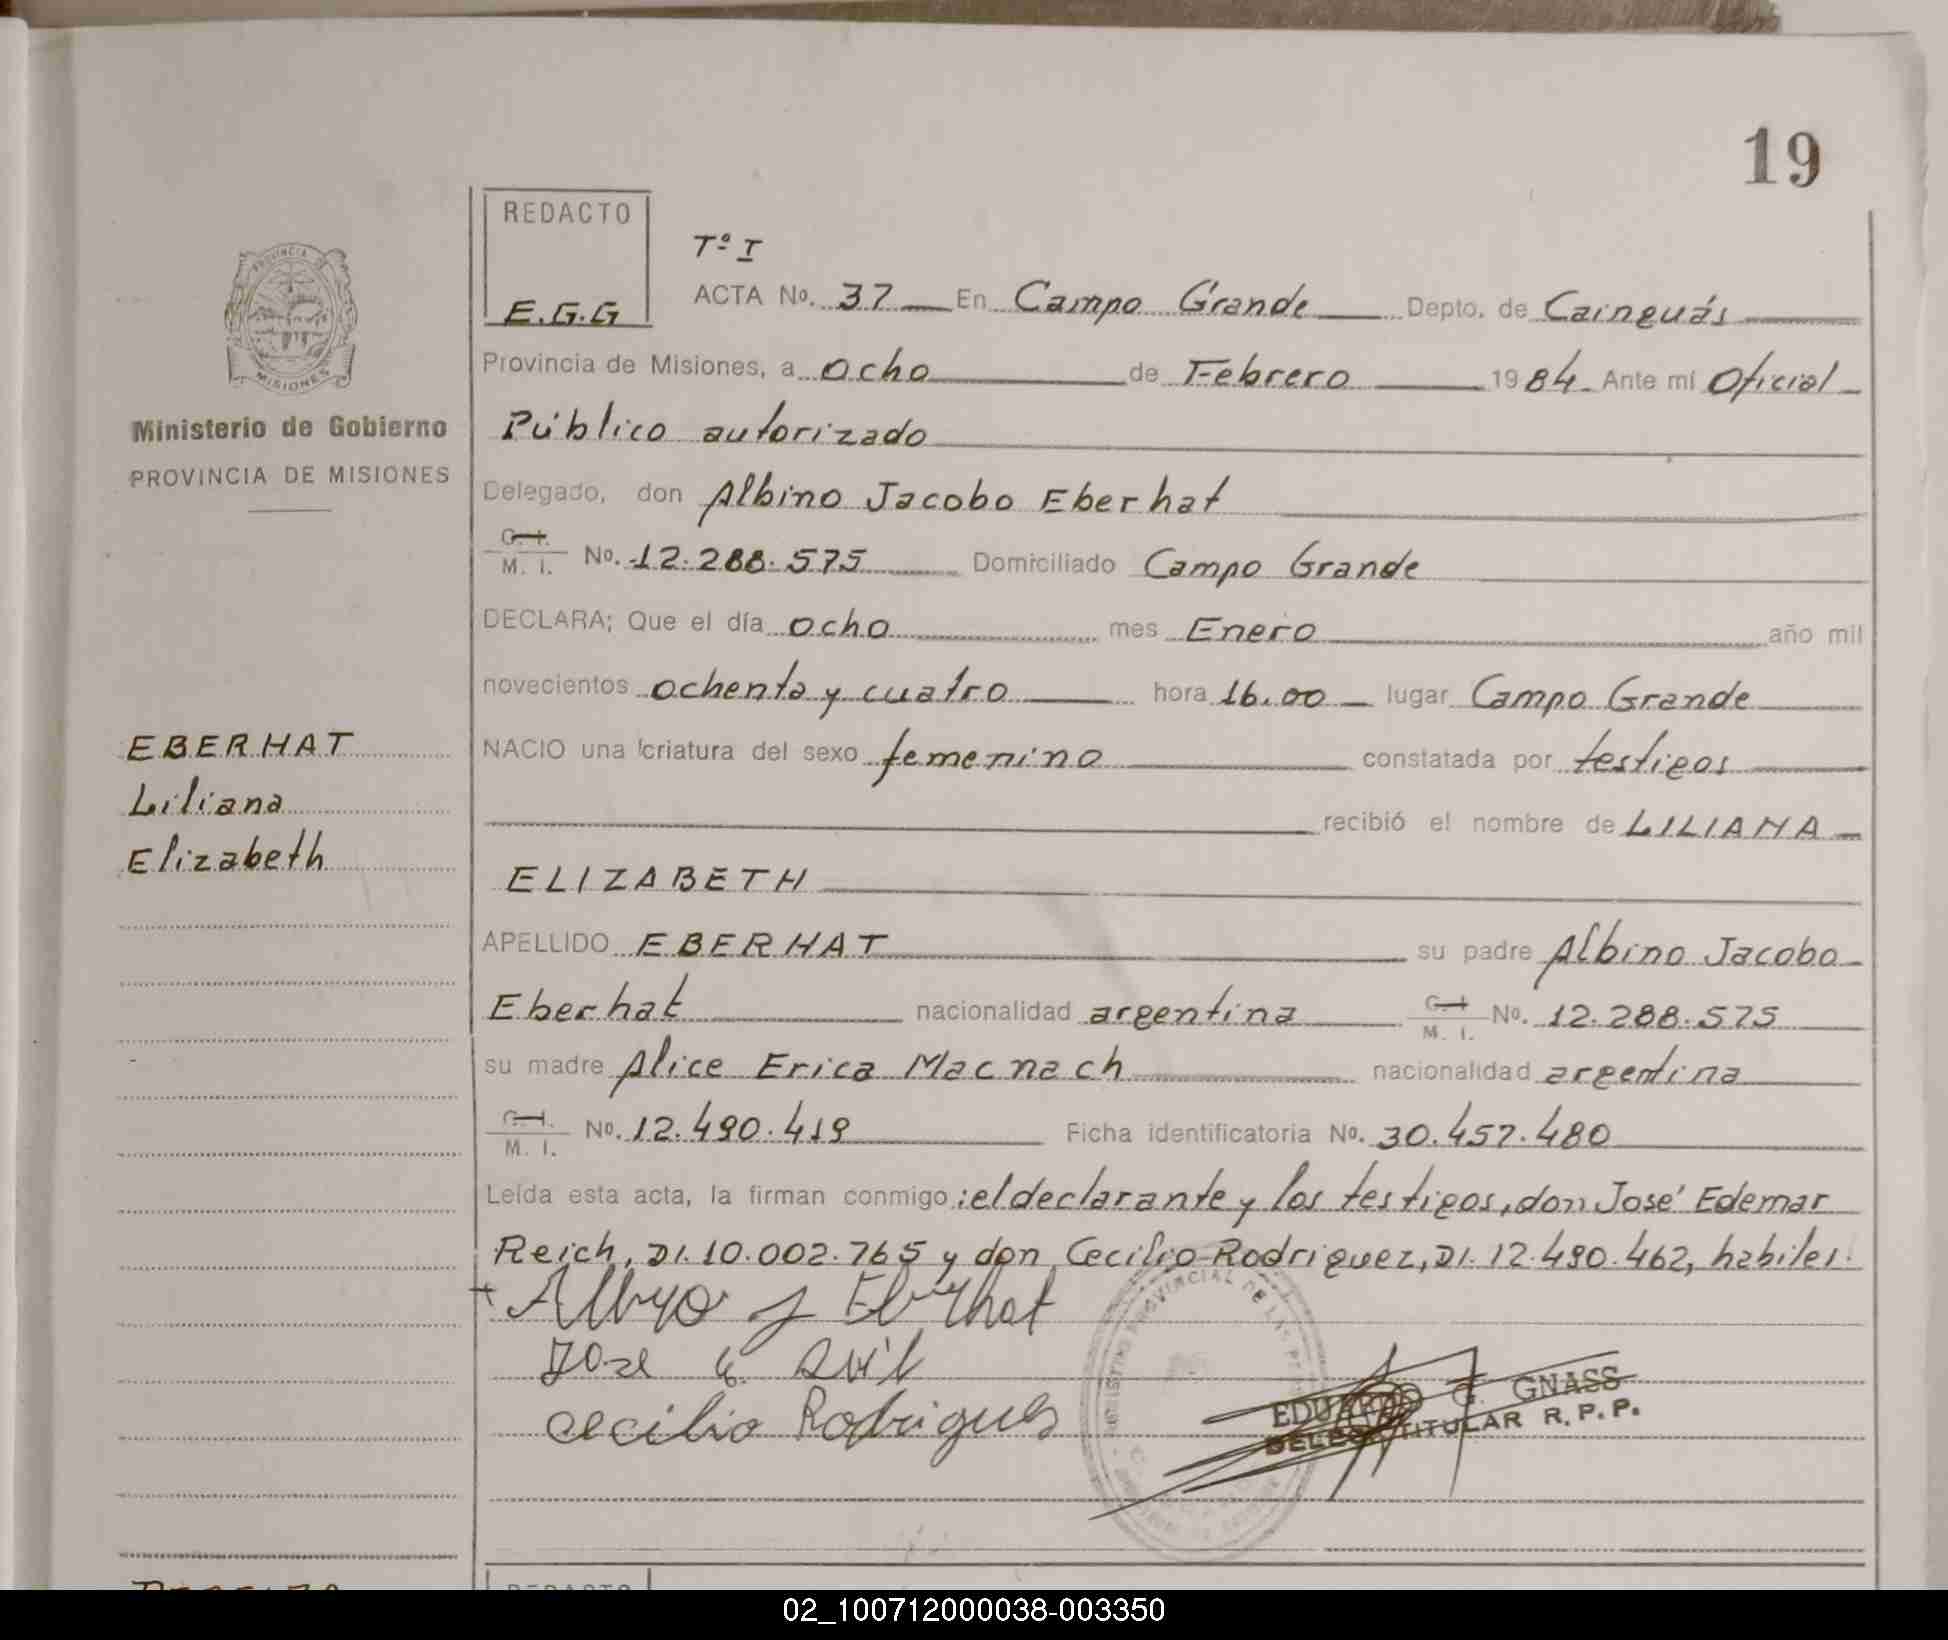 19
REDACTO
E.G.G
Tº I
ACTA No. 37 En Campo Grande Depto. de Cainguás
Provincia de Misiones, a ocho de Febrero 1984 Ante mí Oficial
Público autorizado
Delegado, don Albino Jacobo Eberhat
C. I.
M. I. No. 12.288.575 Domiciliado Campo Grande
DECLARA; Que el día ocho mes Enero año mil
novecientos ochenta y cuatro hora 16.00 lugar Campo Grande
NACIO una criatura del sexo femenino constatada por testigos
recibió el nombre de LILIANA
ELIZABETH
APELLIDO EBERHAT su padre Albino Jacobo
Eberhat nacionalidad argentina C. I. M. I. No. 12.288.575
su madre Alice Erica Macnach nacionalidad argentina
C. I.
M. I. No. 12.490.419 Ficha identificatoria No. 30.457.480
Leída esta acta, la firman conmigo: el declarante y los testigos, don José Edemar
Reich, DI. 10.002.765 y don Cecilio Rodriguez, DI. 12.490.462, habiles.
Albino J Eberhat
Cecilio Rodrigues
EDUARDO G. GNASS
DELEG. TITULAR R.P.P.
PROVINCIA DE
MISIONES
Ministerio de Gobierno
PROVINCIA DE MISIONES
EBERHAT
Liliana
Elizabeth
REDACTO
02_100712000038-003350